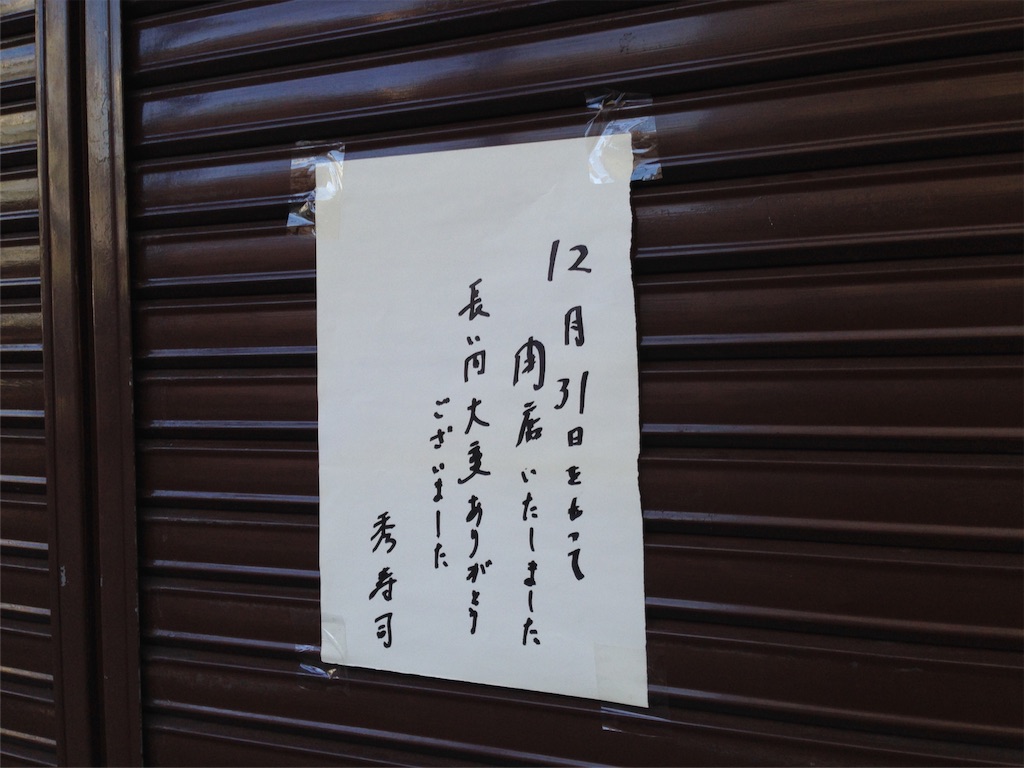 12月31日をもって
閉店いたしました
長い間大変ありがとう
ございました
秀寿司